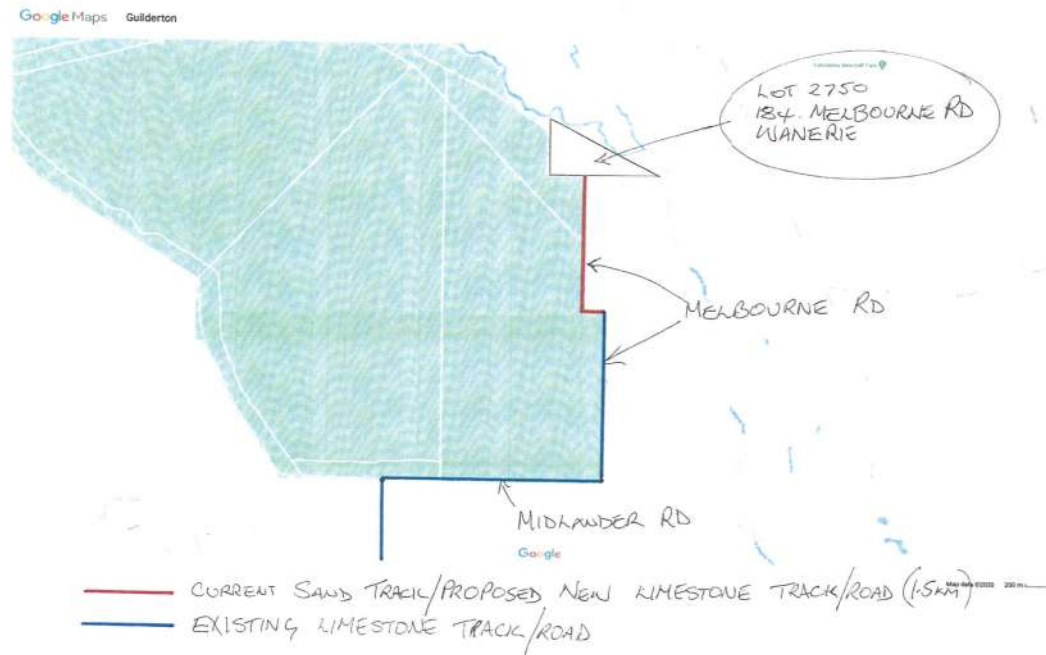 Google Maps Guilderton
LOT 2750
184. MELBOURNE RD
WANERIE
MELBOURNE RD
MIDLANDER RD
Google
CURRENT SAND TRACK/PROPOSED NEW LIMESTONE TRACK/ROAD (1.5KM)
Map data ©2020 200 m
EXISTING LIMESTONE TRACK/ROAD